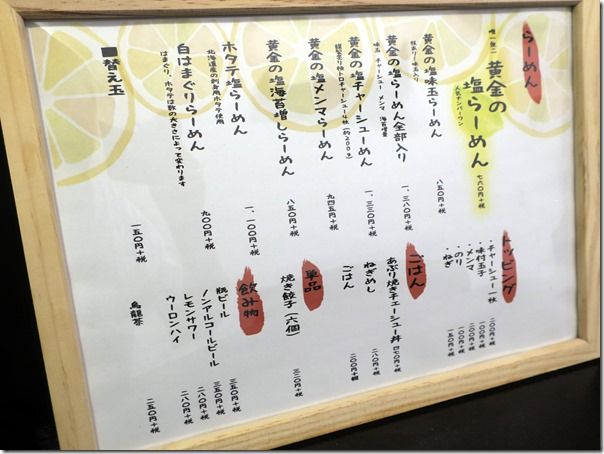 らーめん
唯一無二
黄金の塩らーめん 七六〇円+税
人気ナンバーワン
黄金の塩味玉らーめん 八五〇円+税
味玉入り
黄金の塩らーめん全部入り 一、三八〇円+税
味玉 チャーシュー メンマ 海苔増量
黄金の塩チャーシューめん 一、三三〇円+税
トロチャーシュー4枚(約200g)
黄金の塩メンマらーめん 九四五円+税
黄金の塩海苔増しらーめん 八五〇円+税
ホタテ塩らーめん 一、一〇〇円+税
北海道産の刺身用ホタテ使用
白はまぐりらーめん 九〇〇円+税
はまぐり、ホタテは数の大きさによって変わります
■替え玉 一五〇円+税
トッピング
・チャーシュー一枚 二〇〇円+税
・味付玉子 一〇〇円+税
・メンマ 一〇〇円+税
・のり 一〇〇円+税
・ねぎ 一五〇円+税
ごはん
あぶり焼きチャーシュー丼 四七〇円+税
ねぎめし 二八〇円+税
ごはん 二〇〇円+税
単品
焼き餃子(六個) 三二〇円+税
飲み物
瓶ビール 円+税
ノンアルコールビール 三五〇円+税
レモンサワー 二八〇円+税
ウーロンハイ 二八〇円+税
烏龍茶 二五〇円+税